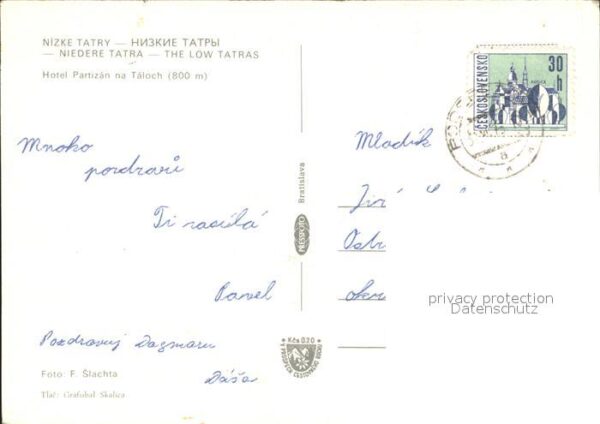 NÍZKE TATRY — НИЗКИЕ ТАТРЫ
— NIEDERE TATRA — THE LOW TATRAS
Hotel Partizán na Táloch (800 m)
Mnoho
pozdravů
Ti zasílá
Pavel
Pozdravuj Dagmaru
Dáša
Foto: F. Šlachta
Tlač: Grafobal Skalica
Bratislava
PRESSFOTO
Kčs 0,20
ČESKOSLOVENSKO
30 h
Mladík
Jiří
Ostr
okr
privacy protection
Datenschutz